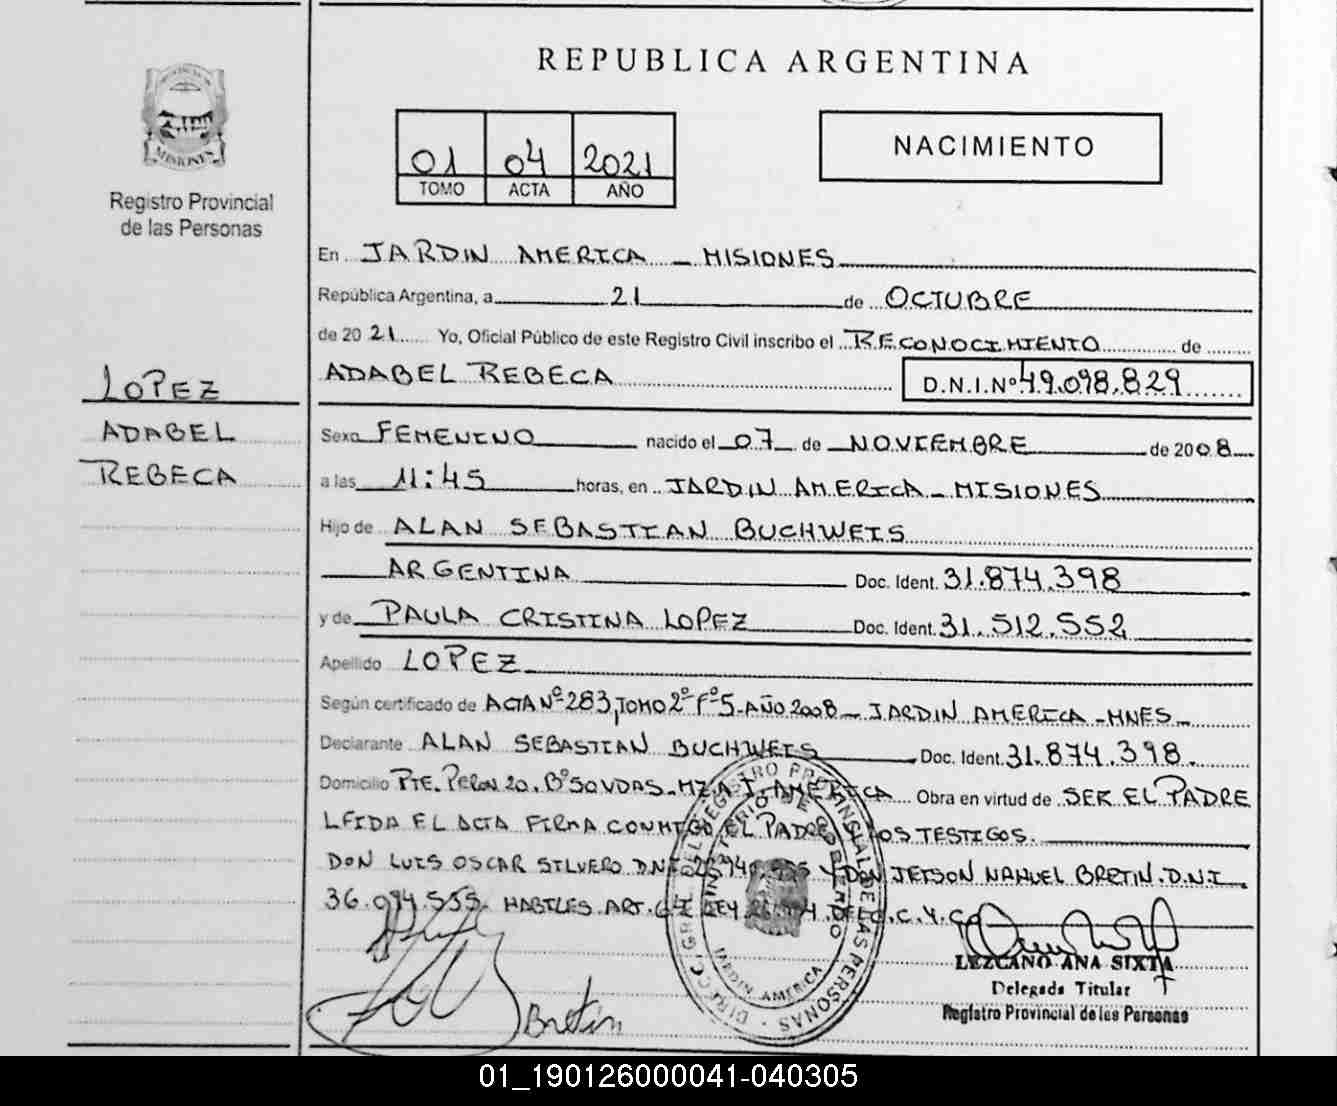 REPUBLICA ARGENTINA
MISIONES
Registro Provincial
de las Personas
01 04 2021
TOMO ACTA AÑO
NACIMIENTO
En JARDIN AMERICA - MISIONES
República Argentina, a 21 de OCTUBRE
de 2021 Yo, Oficial Público de este Registro Civil inscribo el RECONOCIMIENTO de
ADABEL REBECA D.N.I.Nº 49.098.829
LOPEZ
ADABEL
REBECA
Sexo FEMENINO nacido el 07 de NOVIEMBRE de 2008
a las 11:45 horas, en JARDIN AMERICA - MISIONES
Hijo de ALAN SEBASTIAN BUCHWEIS
ARGENTINA Doc. Ident. 31.874.398
y de PAULA CRISTINA LOPEZ Doc. Ident. 31.512.552
Apellido LOPEZ
Según certificado de ACTA Nº 283, TOMO 2º Fº 5 - AÑO 2008 - JARDIN AMERICA - MNES -
Declarante ALAN SEBASTIAN BUCHWEIS Doc. Ident. 31.874.398.
Domicilio PTE. PERON 20. Bº 50 VDAS. MZ A J. AMERICA Obra en virtud de SER EL PADRE
LEIDA EL ACTA FIRMA CONMIGO EL PADRE Y LOS TESTIGOS.
DON LUIS OSCAR SILVERO D.N.I. Y DON JETSON NAHUEL BRETIN. D.N.I
36.094.555. HABILES ART. 64 LEY DEL C. Y C.
Bretin
JARDIN AMERICA
LEZCANO ANA SIXTA
Delegada Titular
Registro Provincial de las Personas
01_190126000041-040305